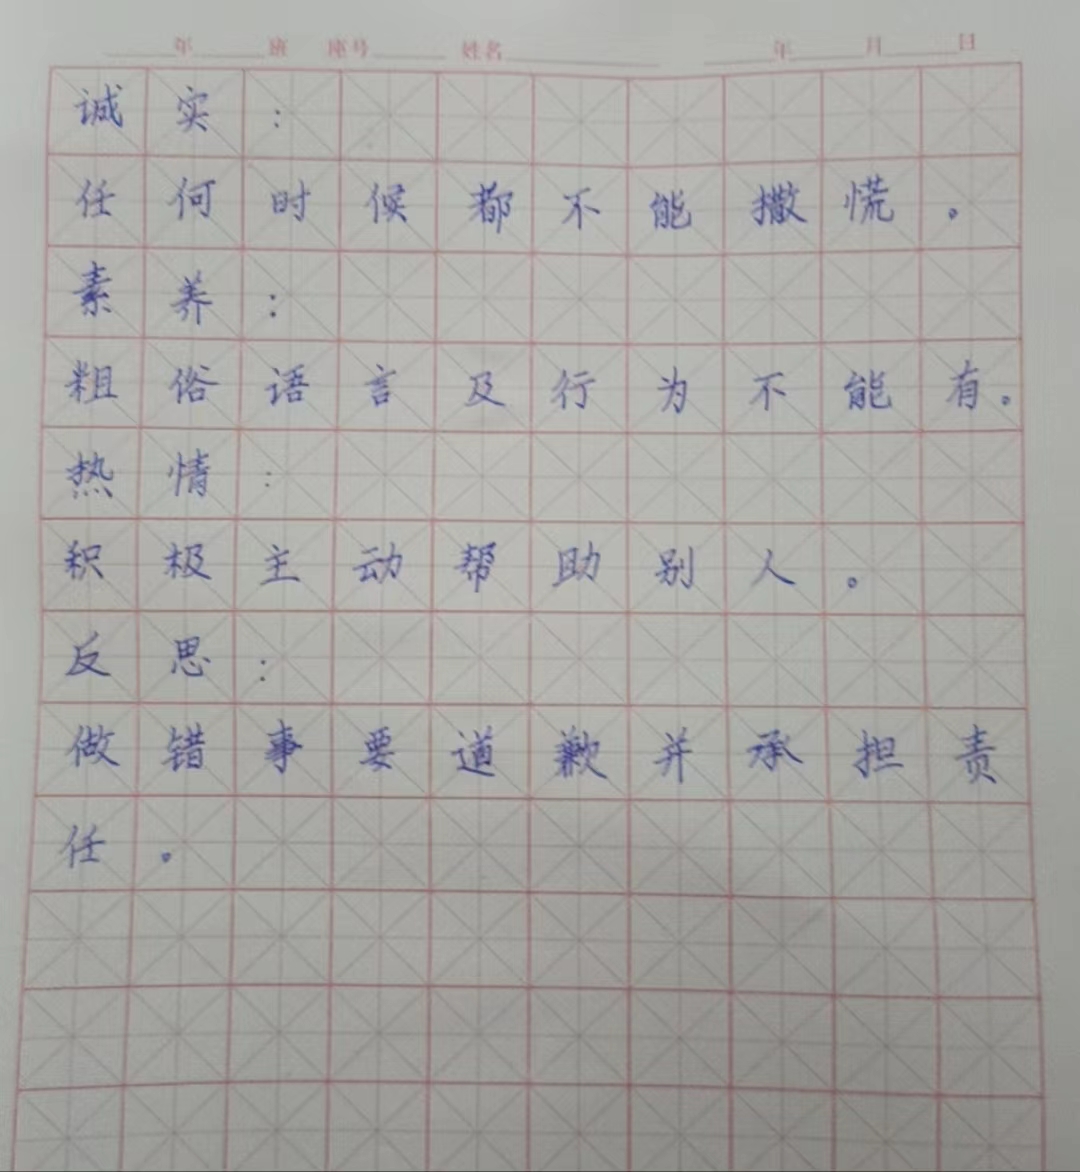 年 班 座号 姓名 年 月 日
诚实：
任何时候都不能撒慌。
素养：
粗俗语言及行为不能有。
热情：
积极主动帮助别人。
反思：
做错事要道歉并承担责
任。